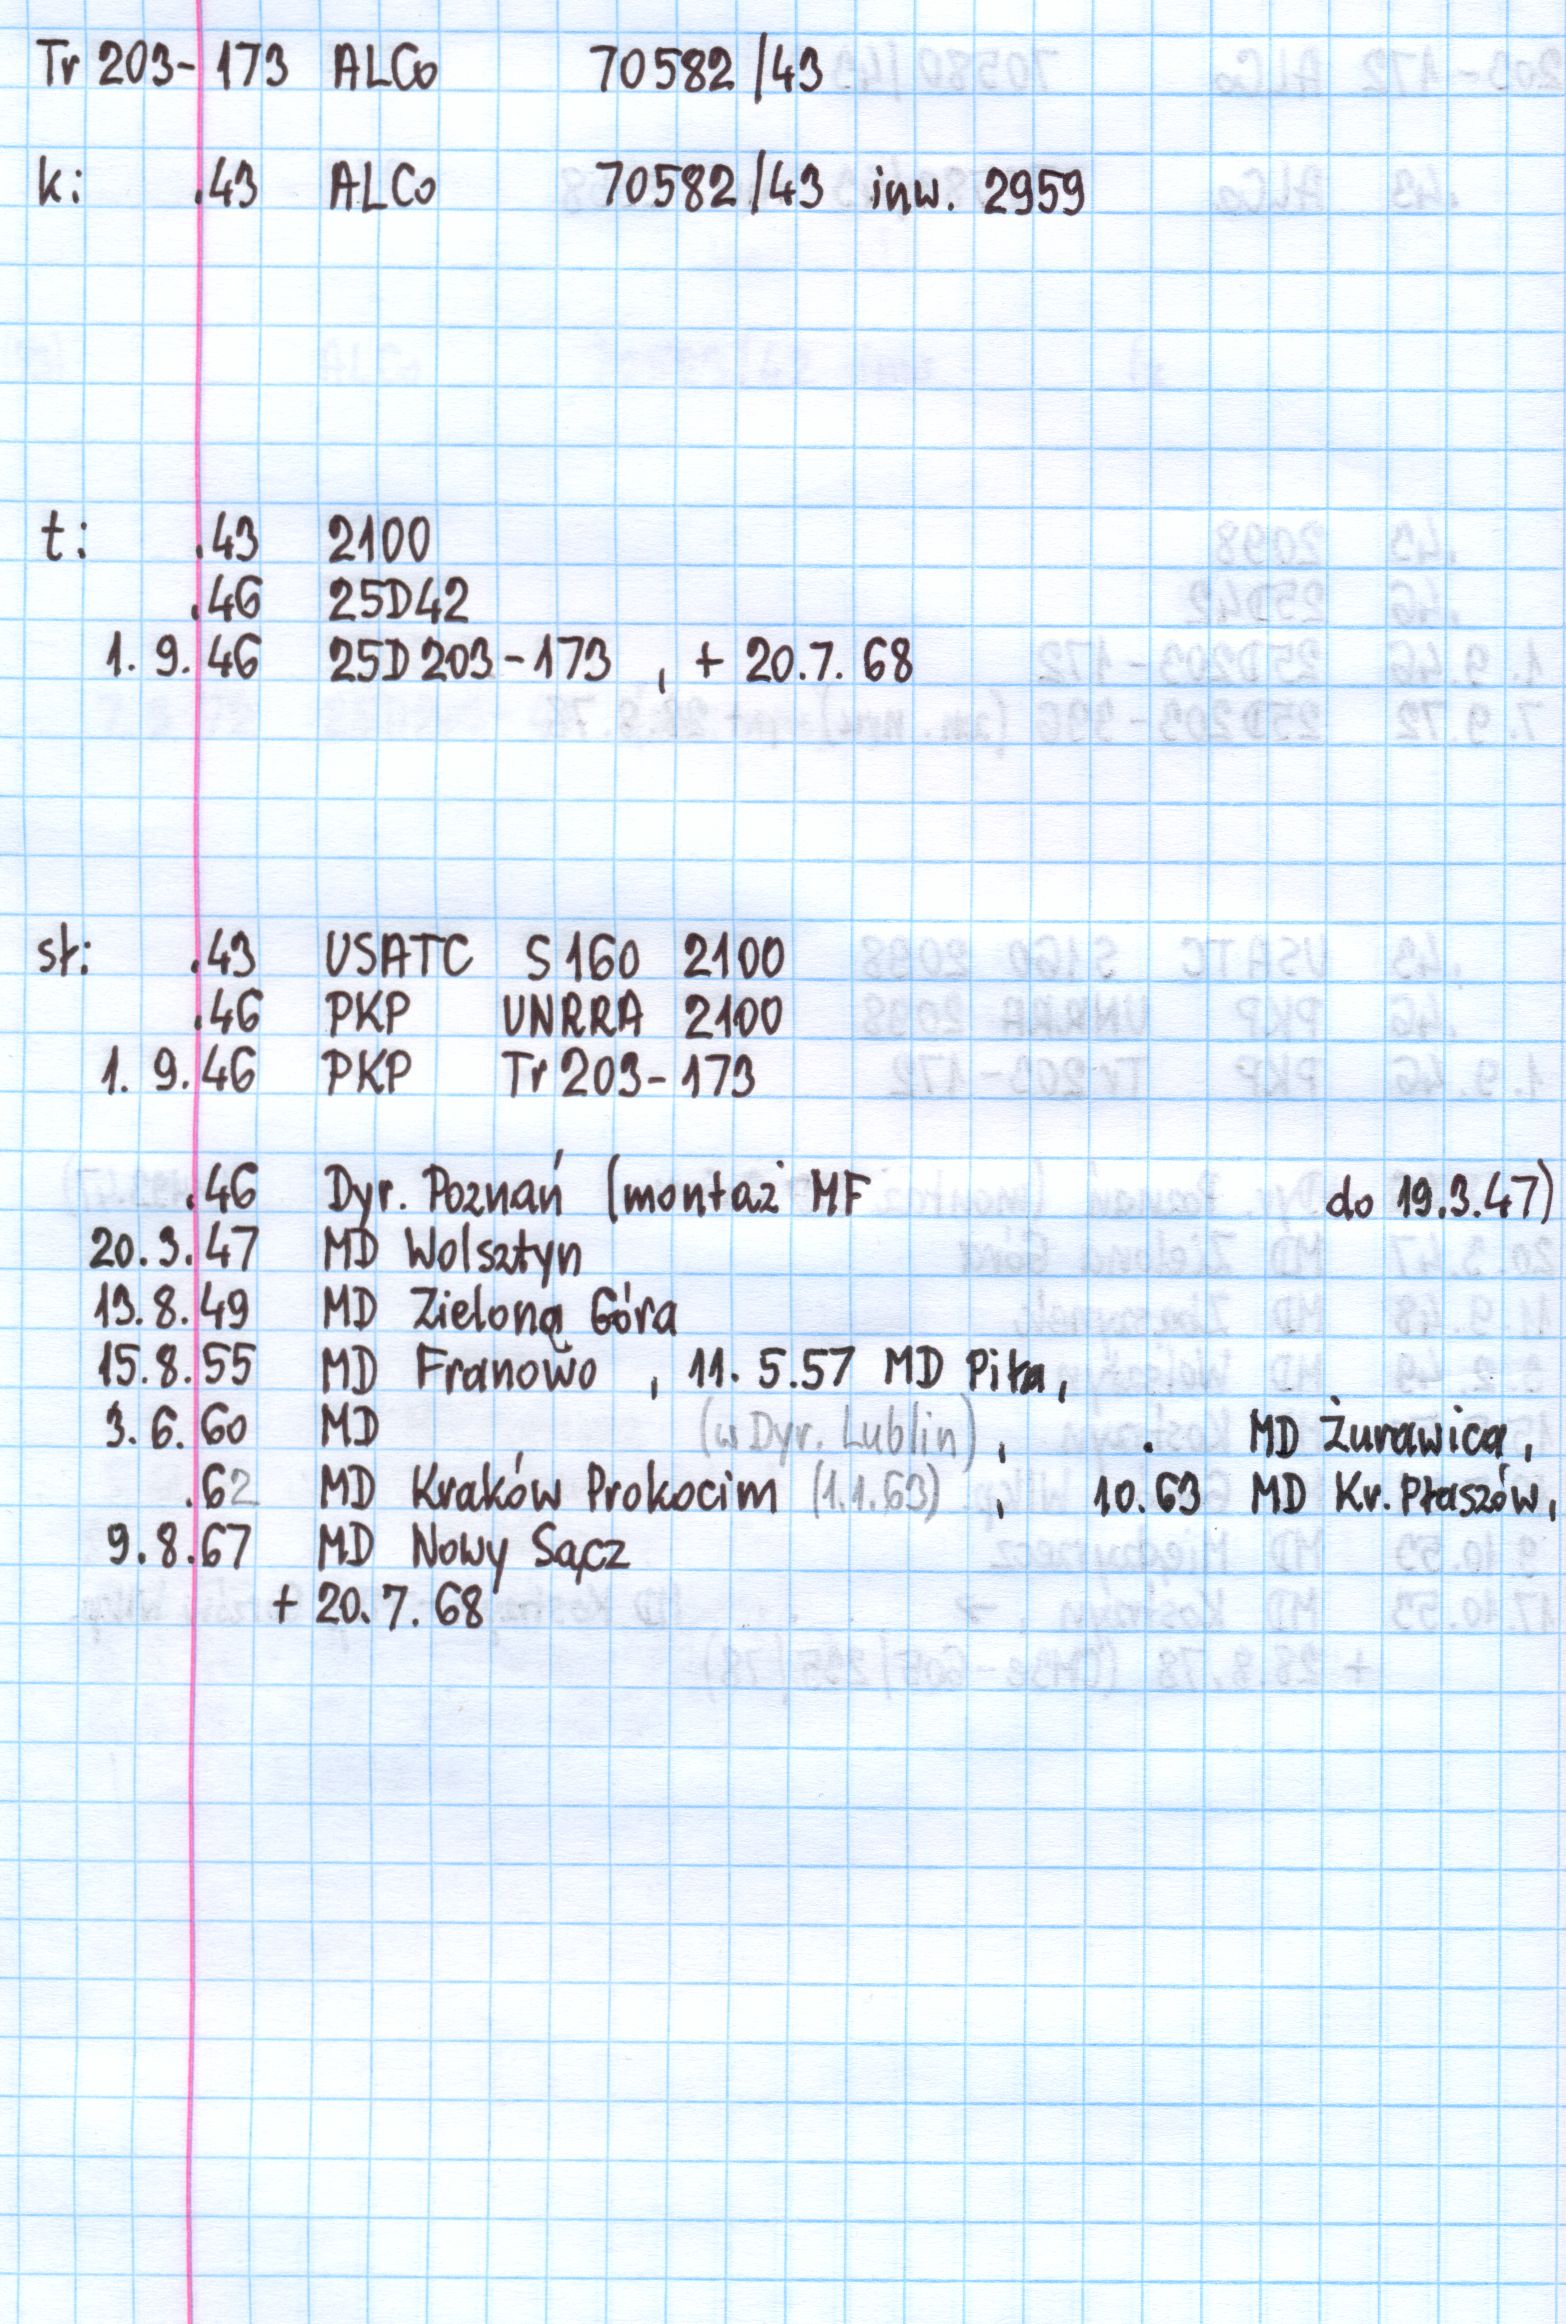 Tr 203-173 ALCo 70582/43
k: .43 ALCo 70582/43 inw. 2959
t: .43 2100
.46 25D42
1. 9.46 25D203-173 , + 20.7.68
sł: .43 USATC S160 2100
.46 PKP UNRRA 2100
1. 9.46 PKP Tr203-173
.46 Dyr. Poznań (montaż MF do 19.3.47)
20.3.47 MD Wolsztyn
13.8.49 MD Zielona Góra
15.8.55 MD Franowo , 11.5.57 MD Piła,
3.6.60 MD (w Dyr. Lublin) , . MD Żurawica,
.62 MD Kraków Prokocim (1.1.63) , 10.63 MD Kr. Płaszów,
9.8.67 MD Nowy Sącz
+ 20.7.68